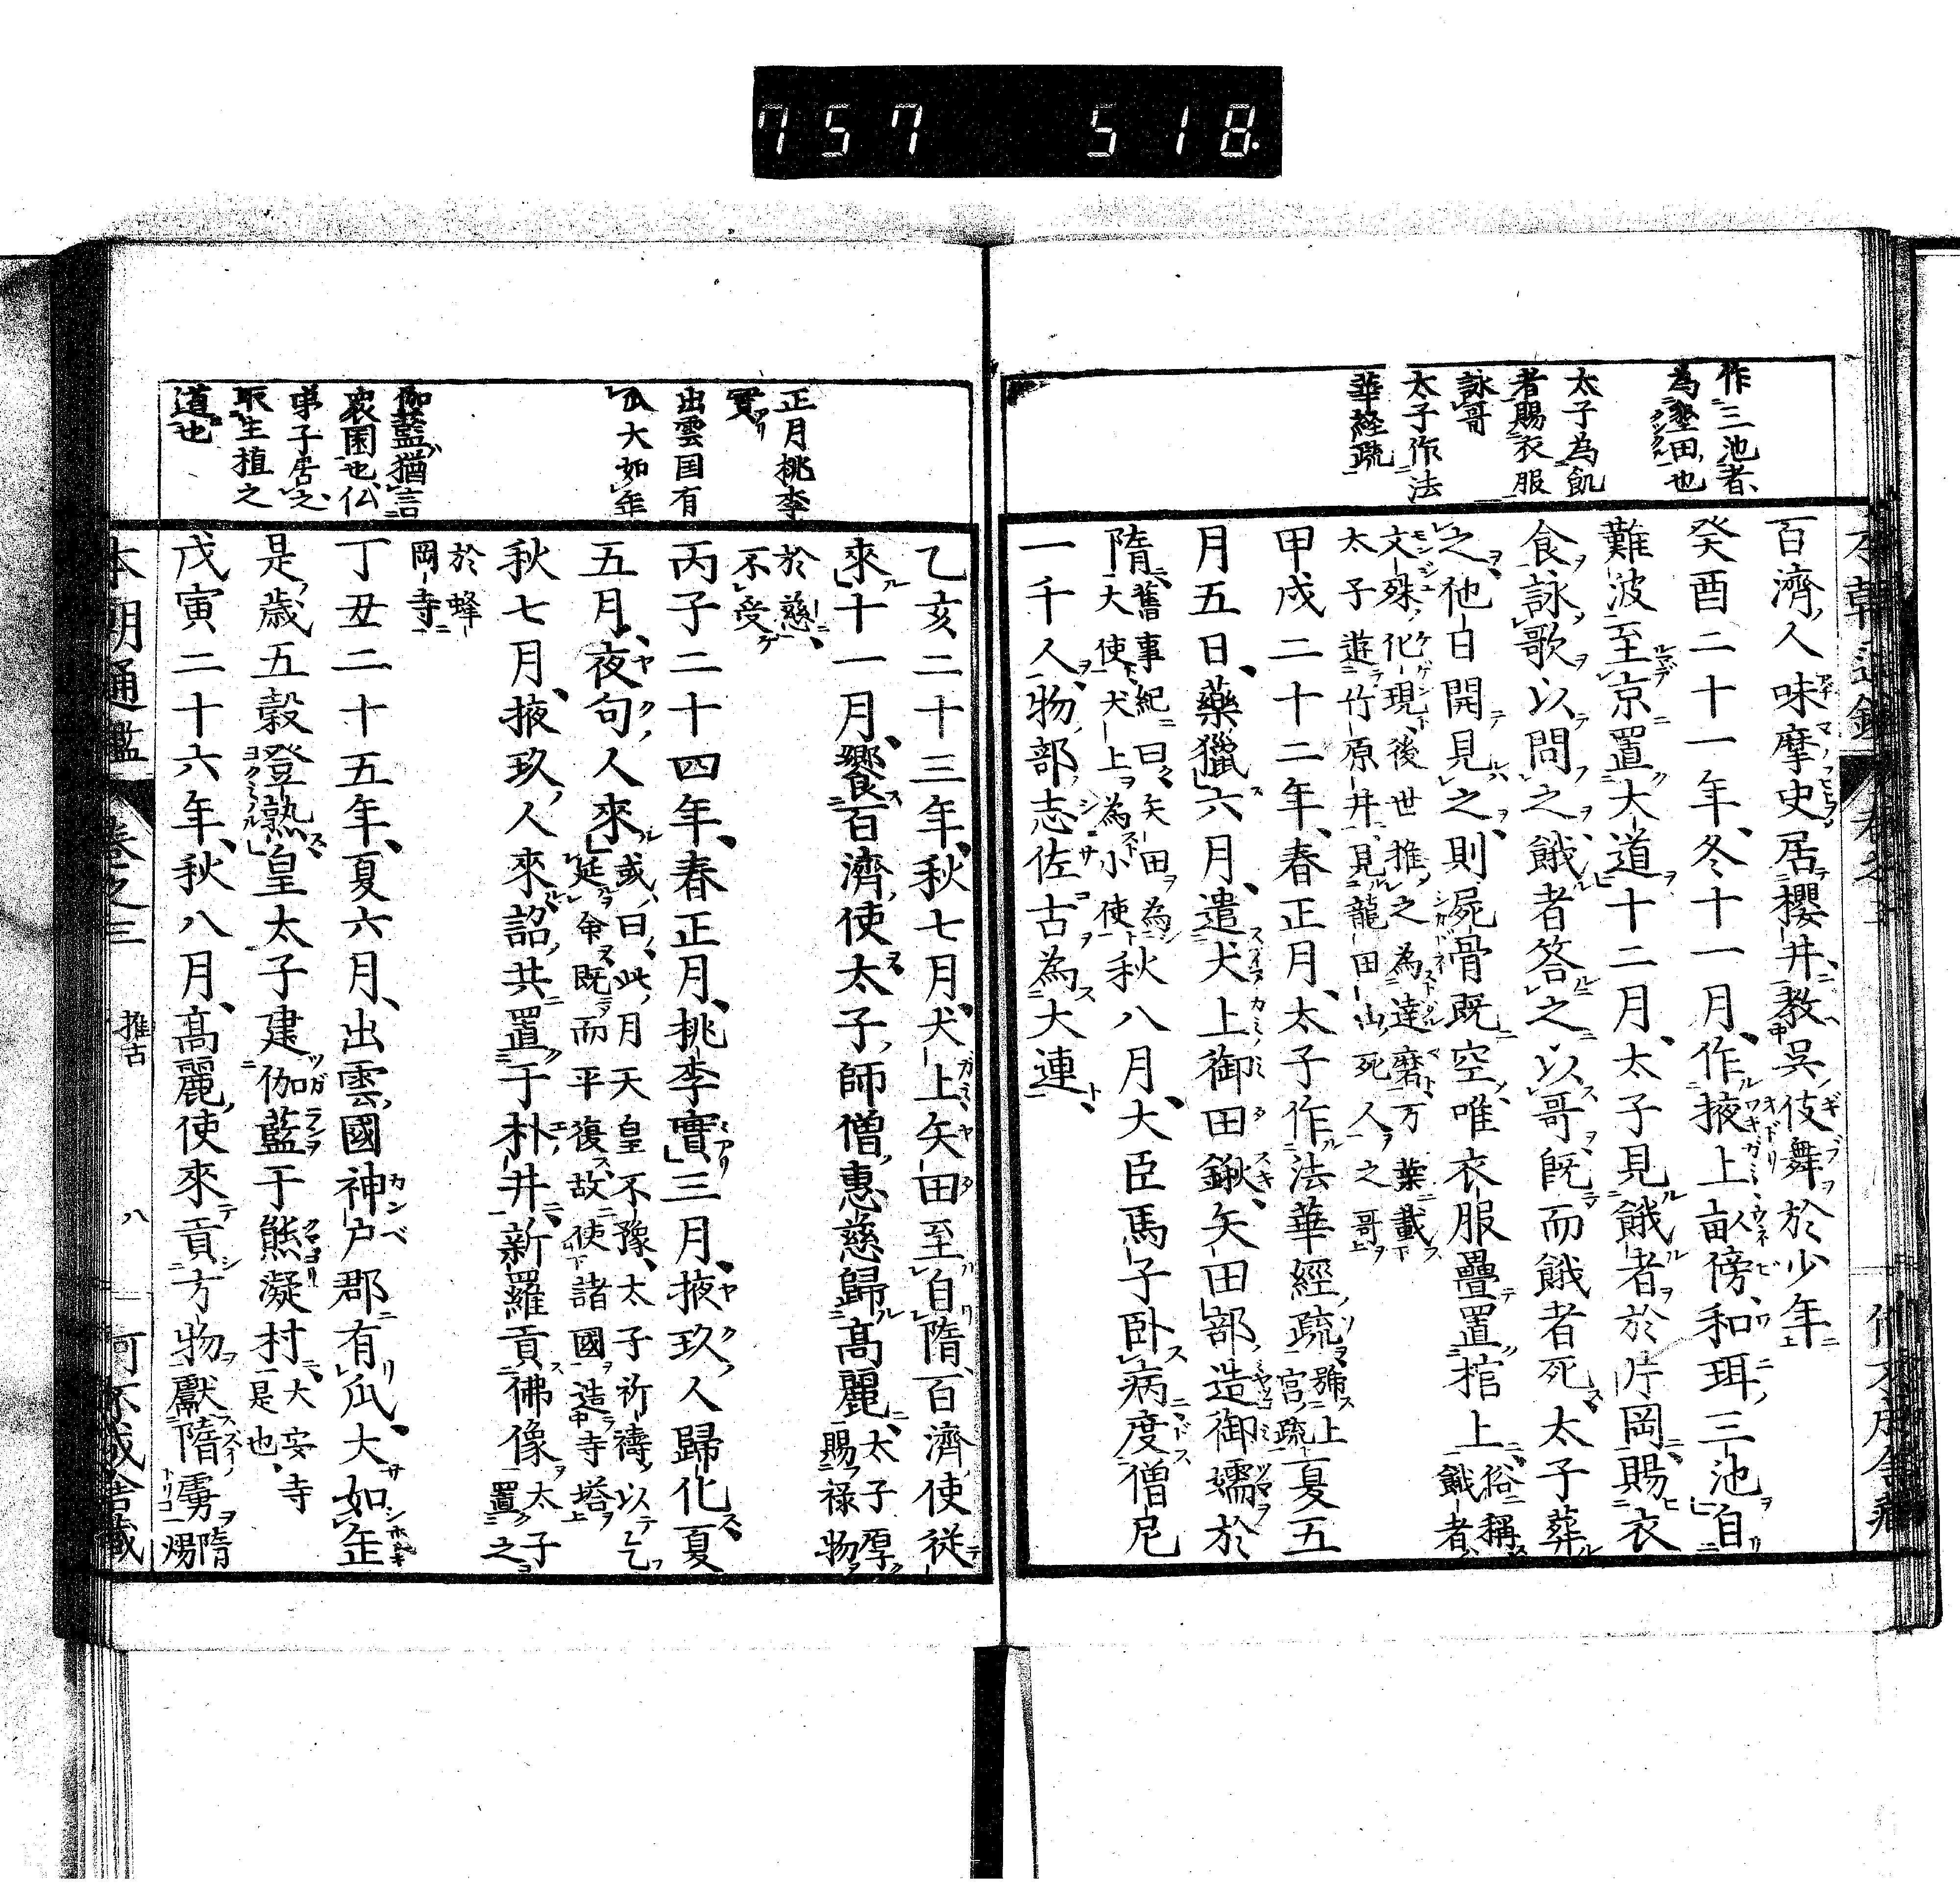 757 518
作三池者、
為墾田也
太子為飢
者賜衣服
詠哥
太子作法
華経疏
百濟人味摩史居櫻井教呉伎舞於少年
癸酉二十一年、冬十一月、作掖上畝傍和珥三池自
難波至京置大道十二月、太子見餓者於片岡賜衣
食詠歌以問之餓者答之以哥既而餓者死太子葬
之他日開見之則屍骨既空唯衣服疊置棺上俗稱
餓者
文殊化現後世推之為達磨万葉載
太子遊竹原井見龍田山死人之哥
甲戌二十二年、春正月、太子作法華經疏號上
宮疏夏五
月五日、藥獵六月、遣犬上御田鍬矢田部造御嬬於
隋舊事紀曰矢田為
大使犬上為小使秋八月、大臣馬子卧病度僧尼
一千人物部志佐古為大連
正月桃李
實
出雲国有
瓜大如缶
伽藍猶言
衆園也仏
弟子居之
取生植之
道也
乙亥二十三年、秋七月、犬上矢田至自隋百濟使従
來十一月、饗百濟使太子師僧惠慈歸高麗太子厚
賜禄物
於慈
不受
丙子二十四年、春正月、桃李實三月、掖玖人歸化夏
五月、夜句人來或曰此月天皇不豫、太子祈禱以乞
延命既而平復故使諸國造寺塔
秋七月、掖玖人來詔共置于朴井新羅貢佛像太子
置之
於蜂
岡寺
丁丑二十五年、夏六月、出雲國神戸郡有瓜大如缶
是歳五穀登熟皇太子建伽藍于熊凝村大安寺
是也
戊寅二十六年、秋八月、高麗使來貢方物獻隋虜隋
煬
本朝通鑑 卷之三 推古 八